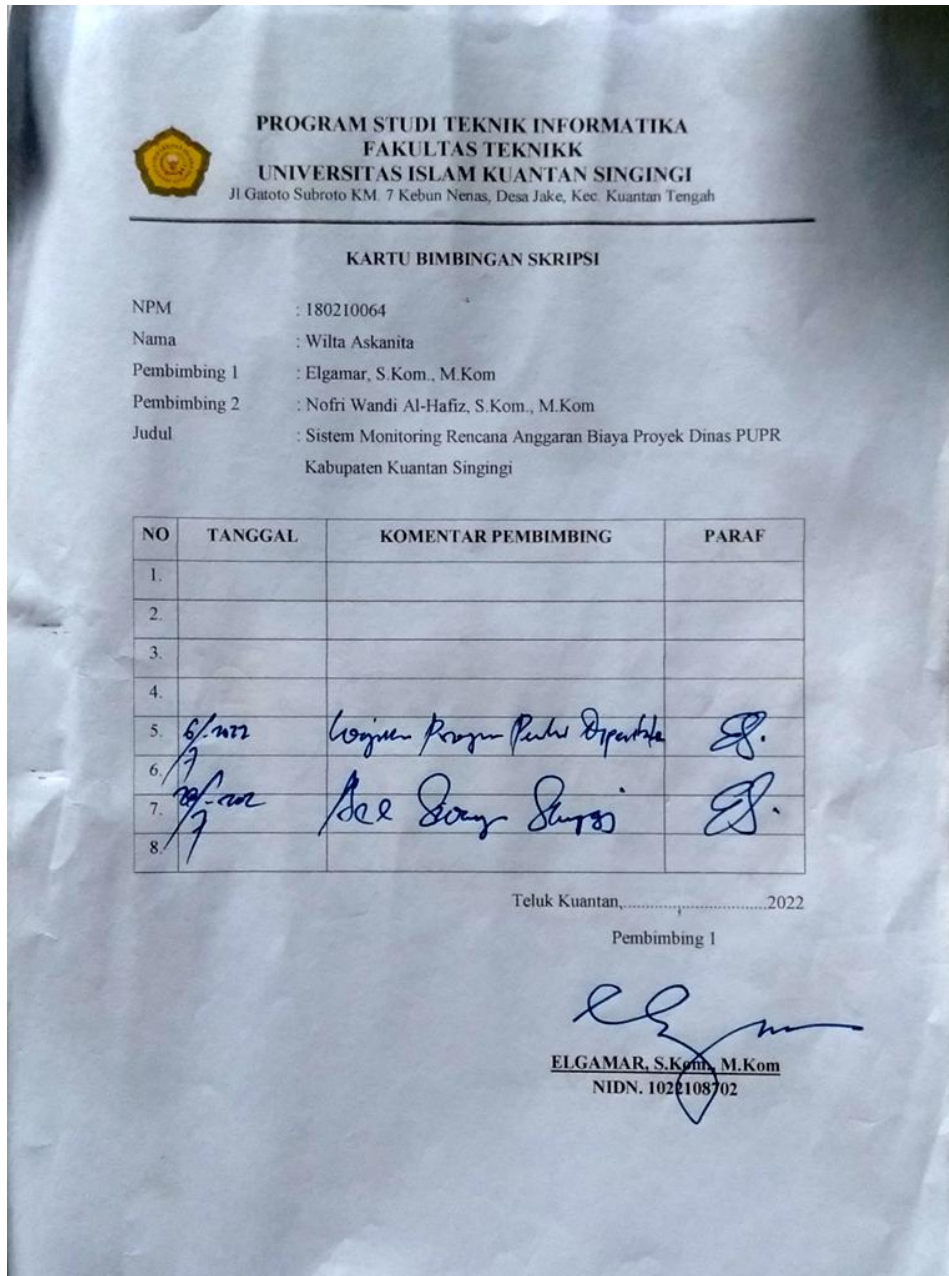 PROGRAM STUDI TEKNIK INFORMATIKA
FAKULTAS TEKNIKK
UNIVERSITAS ISLAM KUANTAN SINGINGI
Jl Gatoto Subroto KM. 7 Kebun Nenas, Desa Jake, Kec. Kuantan Tengah
KARTU BIMBINGAN SKRIPSI
NPM : 180210064
Nama : Wilta Askanita
Pembimbing 1 : Elgamar, S.Kom., M.Kom
Pembimbing 2 : Nofri Wandi Al-Hafiz, S.Kom., M.Kom
Judul : Sistem Monitoring Rencana Anggaran Biaya Proyek Dinas PUPR
Kabupaten Kuantan Singingi
NO TANGGAL KOMENTAR PEMBIMBING PARAF
1.
2.
3.
4.
5. 6/7-2022 Program Perlu
6.
7. Acc
8.
Teluk Kuantan,................................2022
Pembimbing 1
ELGAMAR, S.Kom., M.Kom
NIDN. 1022108702